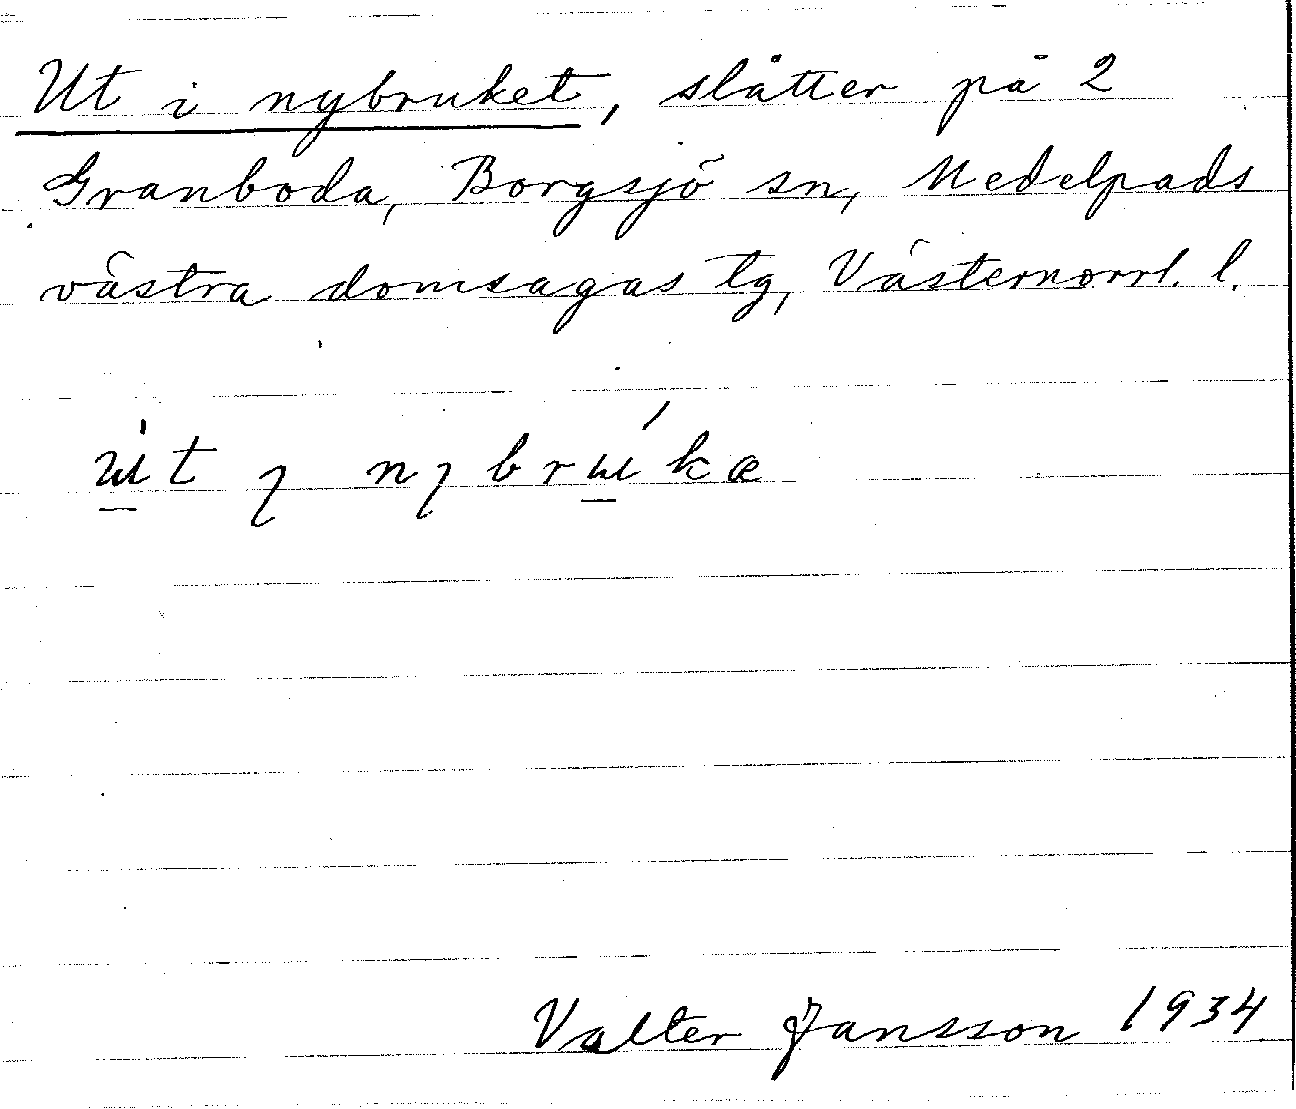 Ut i nybruket, slåtter på 2
Granboda, Borgsjö sn, Medelpads
västra domsagas tg, Västernorrl. l.
ɯ̀t ı nybrɯ́kæ
Valter Jansson 1934